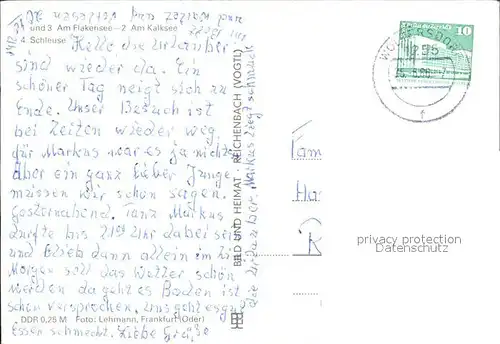 und 3 Am Flakensee – 2 Am Kalksee
4 Schleuse
Hallo die Urlauber
sind wieder da. Ein
schöner Tag neigt sich zu
Ende. Unser Besuch ist
bei Zeiten wieder weg
für Markus war es ja nicht
aber ein ganz lieber Junge
müssen wir schon sagen.
Gesternabend. Tanz Markus
durfte bis 21 Uhr dabei sein
und blieb dann allein im
Morgen soll das Wetter schön
werden da geht es Baden ist
schon versprochen. Uns geht es gut
Essen schmeckt. Liebe Grüße
DDR 0,25 M Foto: Lehmann, Frankfurt (Oder)
BILD UND HEIMAT REICHENBACH (VOGTL)
die Urlauber. Markus
10
WOLTERSDORF
1255
Fam
Ha
R
privacy protection
Datenschutz